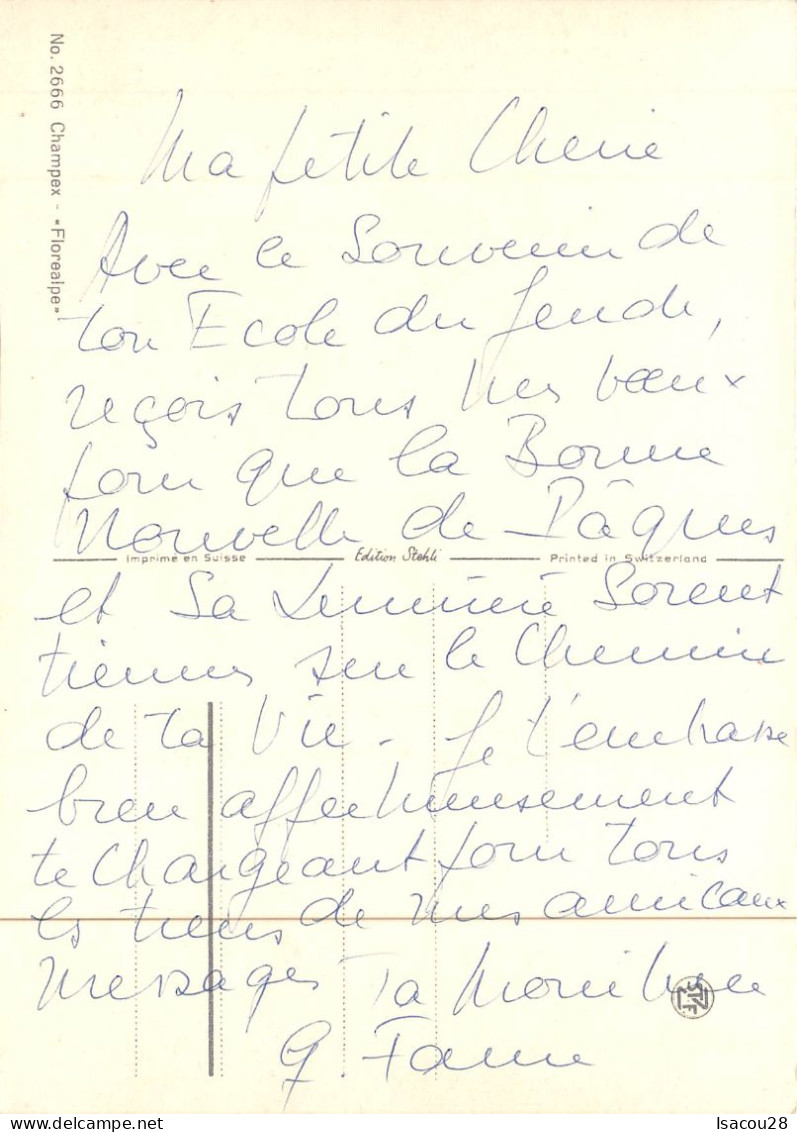 No. 2666 Champex - «Florealpe»
Ma petite Cherie
Avec le Souvenir de
ton Ecole du Jeudi,
reçois tous mes voeux
pour que la Bonne
Nouvelle de Pâques
Imprimé en Suisse Edition Stehli Printed in Switzerland
et Sa Lumière Soient
tiennes sur le Chemin
de ta Vie - Je t'embrasse
bien affectueusement
te Chargeant pour tous
les tiens de mes amicaux
messages Ta
G.
Isacou28